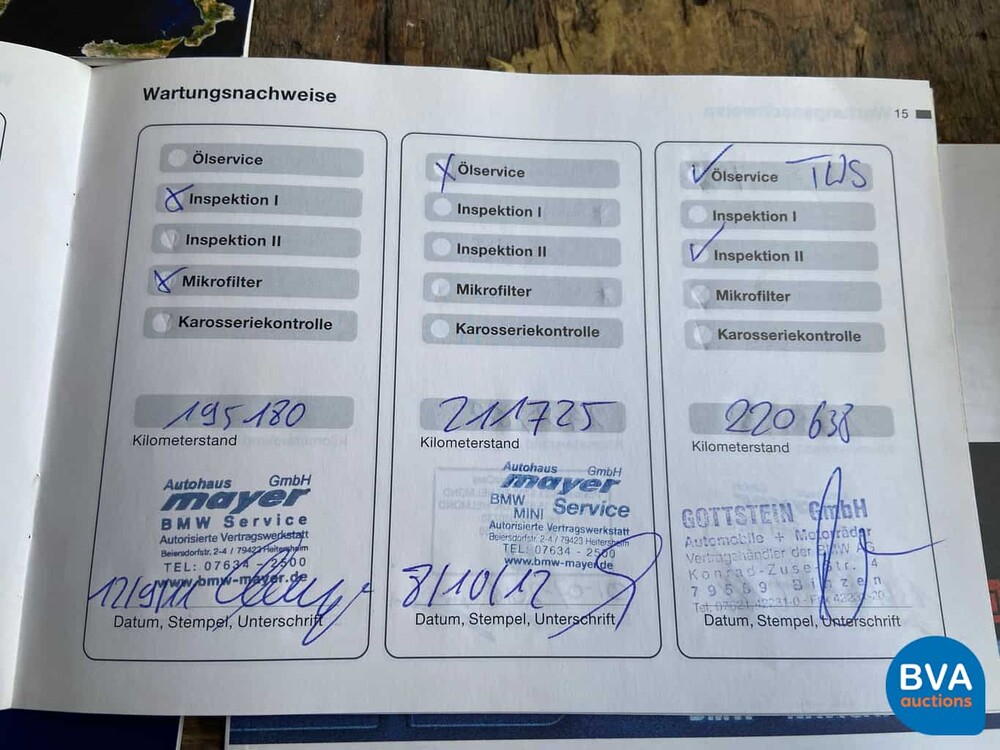 Wartungsnachweise
15
Ölservice
Inspektion I
Inspektion II
Mikrofilter
Karosseriekontrolle
195180
Kilometerstand
Autohaus GmbH
mayer
BMW Service
Autorisierte Vertragswerkstatt
Beiersdorfstr. 2-4 / 79423 Heitersheim
TEL: 07634 - 2500
www.bmw-mayer.de
12/9/11
Datum, Stempel, Unterschrift
Ölservice
Inspektion I
Inspektion II
Mikrofilter
Karosseriekontrolle
211725
Kilometerstand
Autohaus GmbH
mayer
BMW
MINI Service
Autorisierte Vertragswerkstatt
Beiersdorfstr. 2-4 / 79423 Heitersheim
TEL: 07634 - 2500
www.bmw-mayer.de
8/10/12
Datum, Stempel, Unterschrift
Ölservice TWS
Inspektion I
Inspektion II
Mikrofilter
Karosseriekontrolle
220 638
Kilometerstand
GOTTSTEIN GmbH
Automobile + Motorräder
Vertragshändler der BMW AG
Konrad-Zuse-Str. 4
79589 Binzen
Tel. 07621/42231-0 - Fax 42231-20
Datum, Stempel, Unterschrift
BVA
auctions